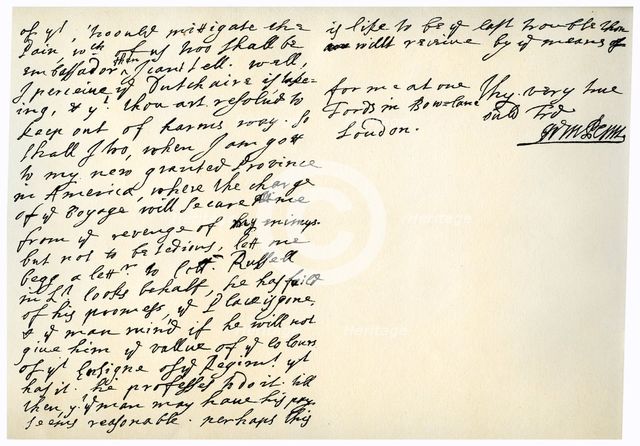 of yt, 'twould mittigate the
pain, wch of us two shall be
embassador then I can't tell. well,
I perceive ye Dutch aire is take-
ing, & yt thou art resolv'd to
keep out of harms way. So
shall I two, when I am gott
to my new granted Province
in America, where the charge
of ye voyage will secure me
from ye revenge of my enimys.
but not to be tedious, lett me
begg a lettr to Coll. Russell
in Lt Cooks behalf, he has faild
of his promess, ye place is gone,
& ye man mind if he will not
give him ye vallue of ye Colours
of yt Ensigne of ye Regimt yt
has it. he professes to do it. till
then, yt ye man may have his pay
seems reasonable. perhaps this
is like to be ye last trouble thou
willt receive by ye means of
Thy very true
old Frd
Wm Penn
for me at one
Fords in Bow-lane
London.
Heritage
Heritage
Heritage